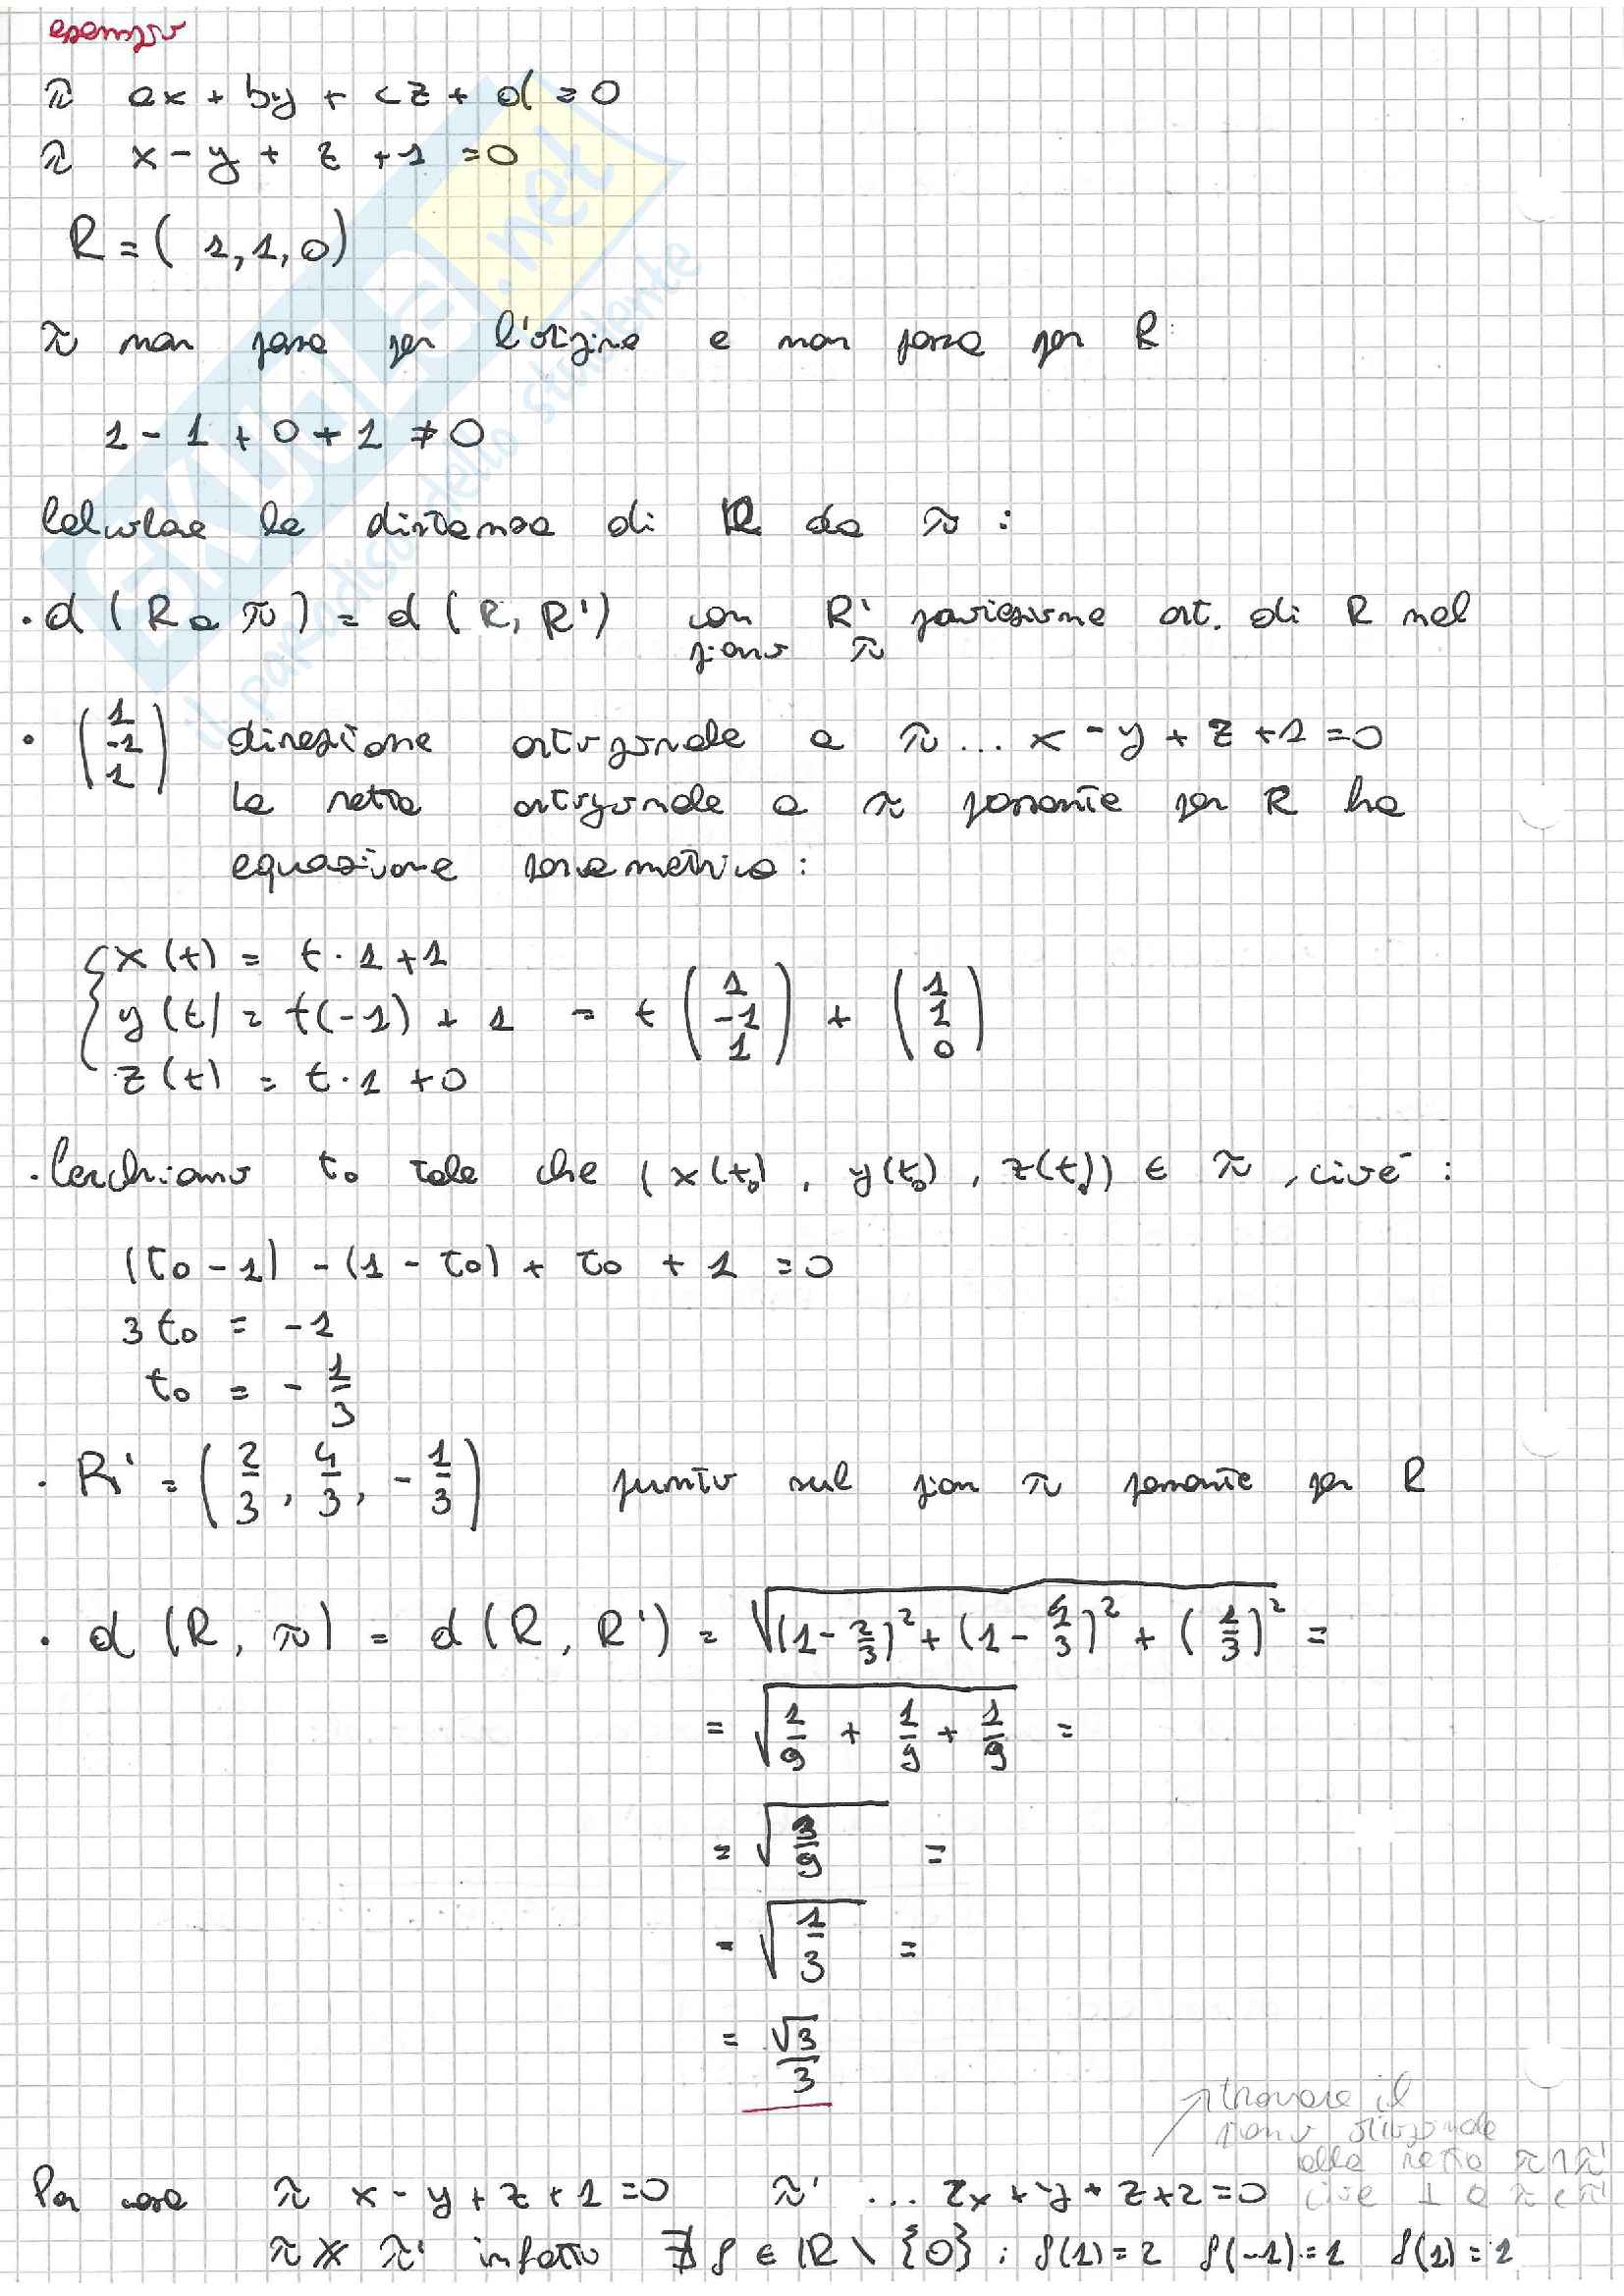 esempio
π ax + by + cz + d = 0
π x - y + z + 1 = 0
R = ( 1, 1, 0)
π non passa per l'origine e non passa per R:
1 - 1 + 0 + 1 ≠ 0
Calcolare la distanza di R da π :
· d ( R a π ) = d ( R, R' ) con R' proiezione ort. di R nel
piano π
· (1 -1 1) direzione ortogonale a π ... x - y + z + 1 = 0
la retta ortogonale a π passante per R ha
equazione parametrica :
{ x (t) = t · 1 + 1
y (t) = t(-1) + 1 = t (1 -1 1) + (1 1 0)
z (t) = t · 1 + 0
· Cerchiamo t₀ tale che ( x(t₀) , y(t₀) , z(t₀)) ∈ π , cioè :
(t₀ - 1) - (1 - t₀) + t₀ + 1 = 0
3 t₀ = -1
t₀ = - 1/3
· R' = ( 2/3 , 4/3 , - 1/3 ) punto sul pian π passante per R
· d (R, π) = d (R, R') = √((1 - 2/3)² + (1 - 4/3)² + (1/3)²) =
= √(1/9 + 1/9 + 1/9) =
= √(3/9) =
= √(1/3) =
= √3/3
trovare il
piano ortogonale
alla retta π ∩ π'
Per casa π x - y + z + 1 = 0 π' ... 2x + y + z + 2 = 0 cioè ⊥ a π e π'
π ∦ π' infatti ∄ ρ ∈ ℝ \ {0} : ρ(1) = 2 ρ(-1) = 1 ρ(1) = 1
skuola.net
il paradiso dello studente